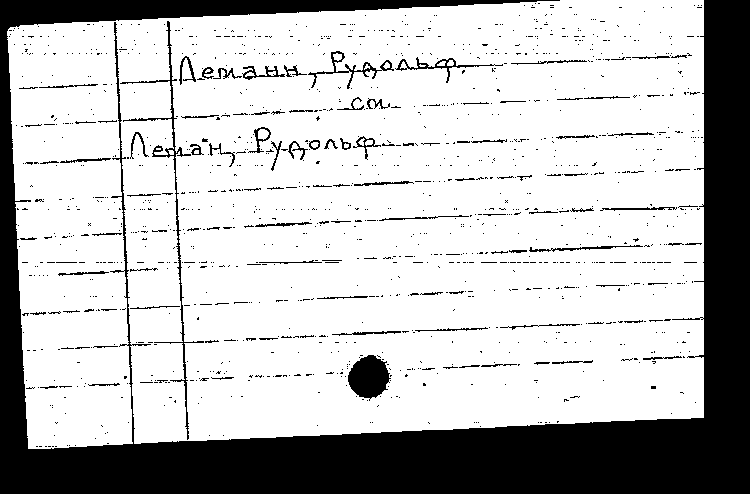 Леманн, Рудольф.
см.
Леман, Рудольф